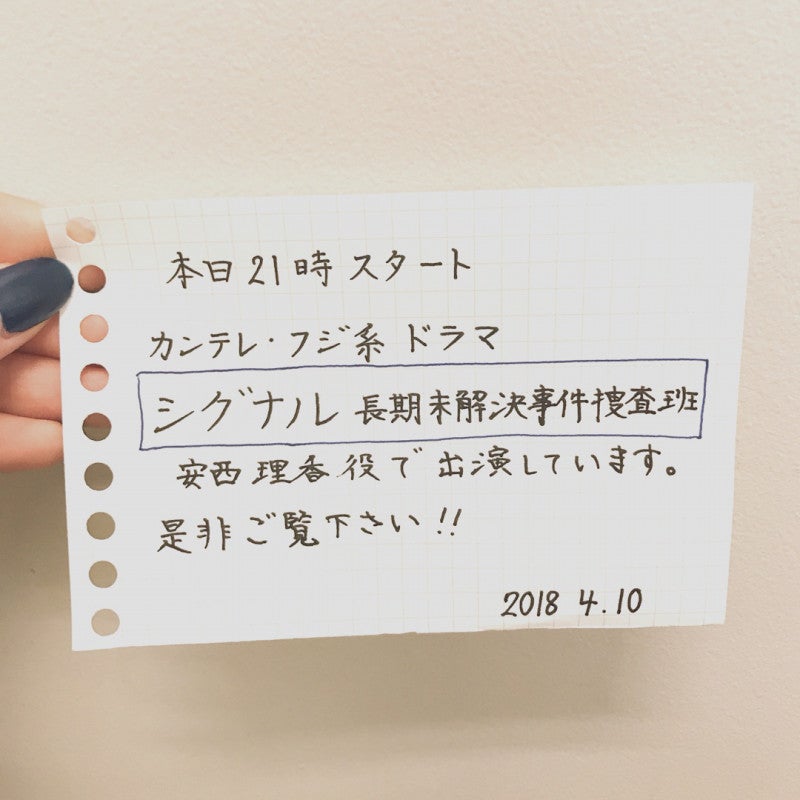 本日21時スタート
カンテレ・フジ系 ドラマ
シグナル 長期未解決事件捜査班
安西理香役で出演しています。
是非ご覧下さい!!
2018 4.10